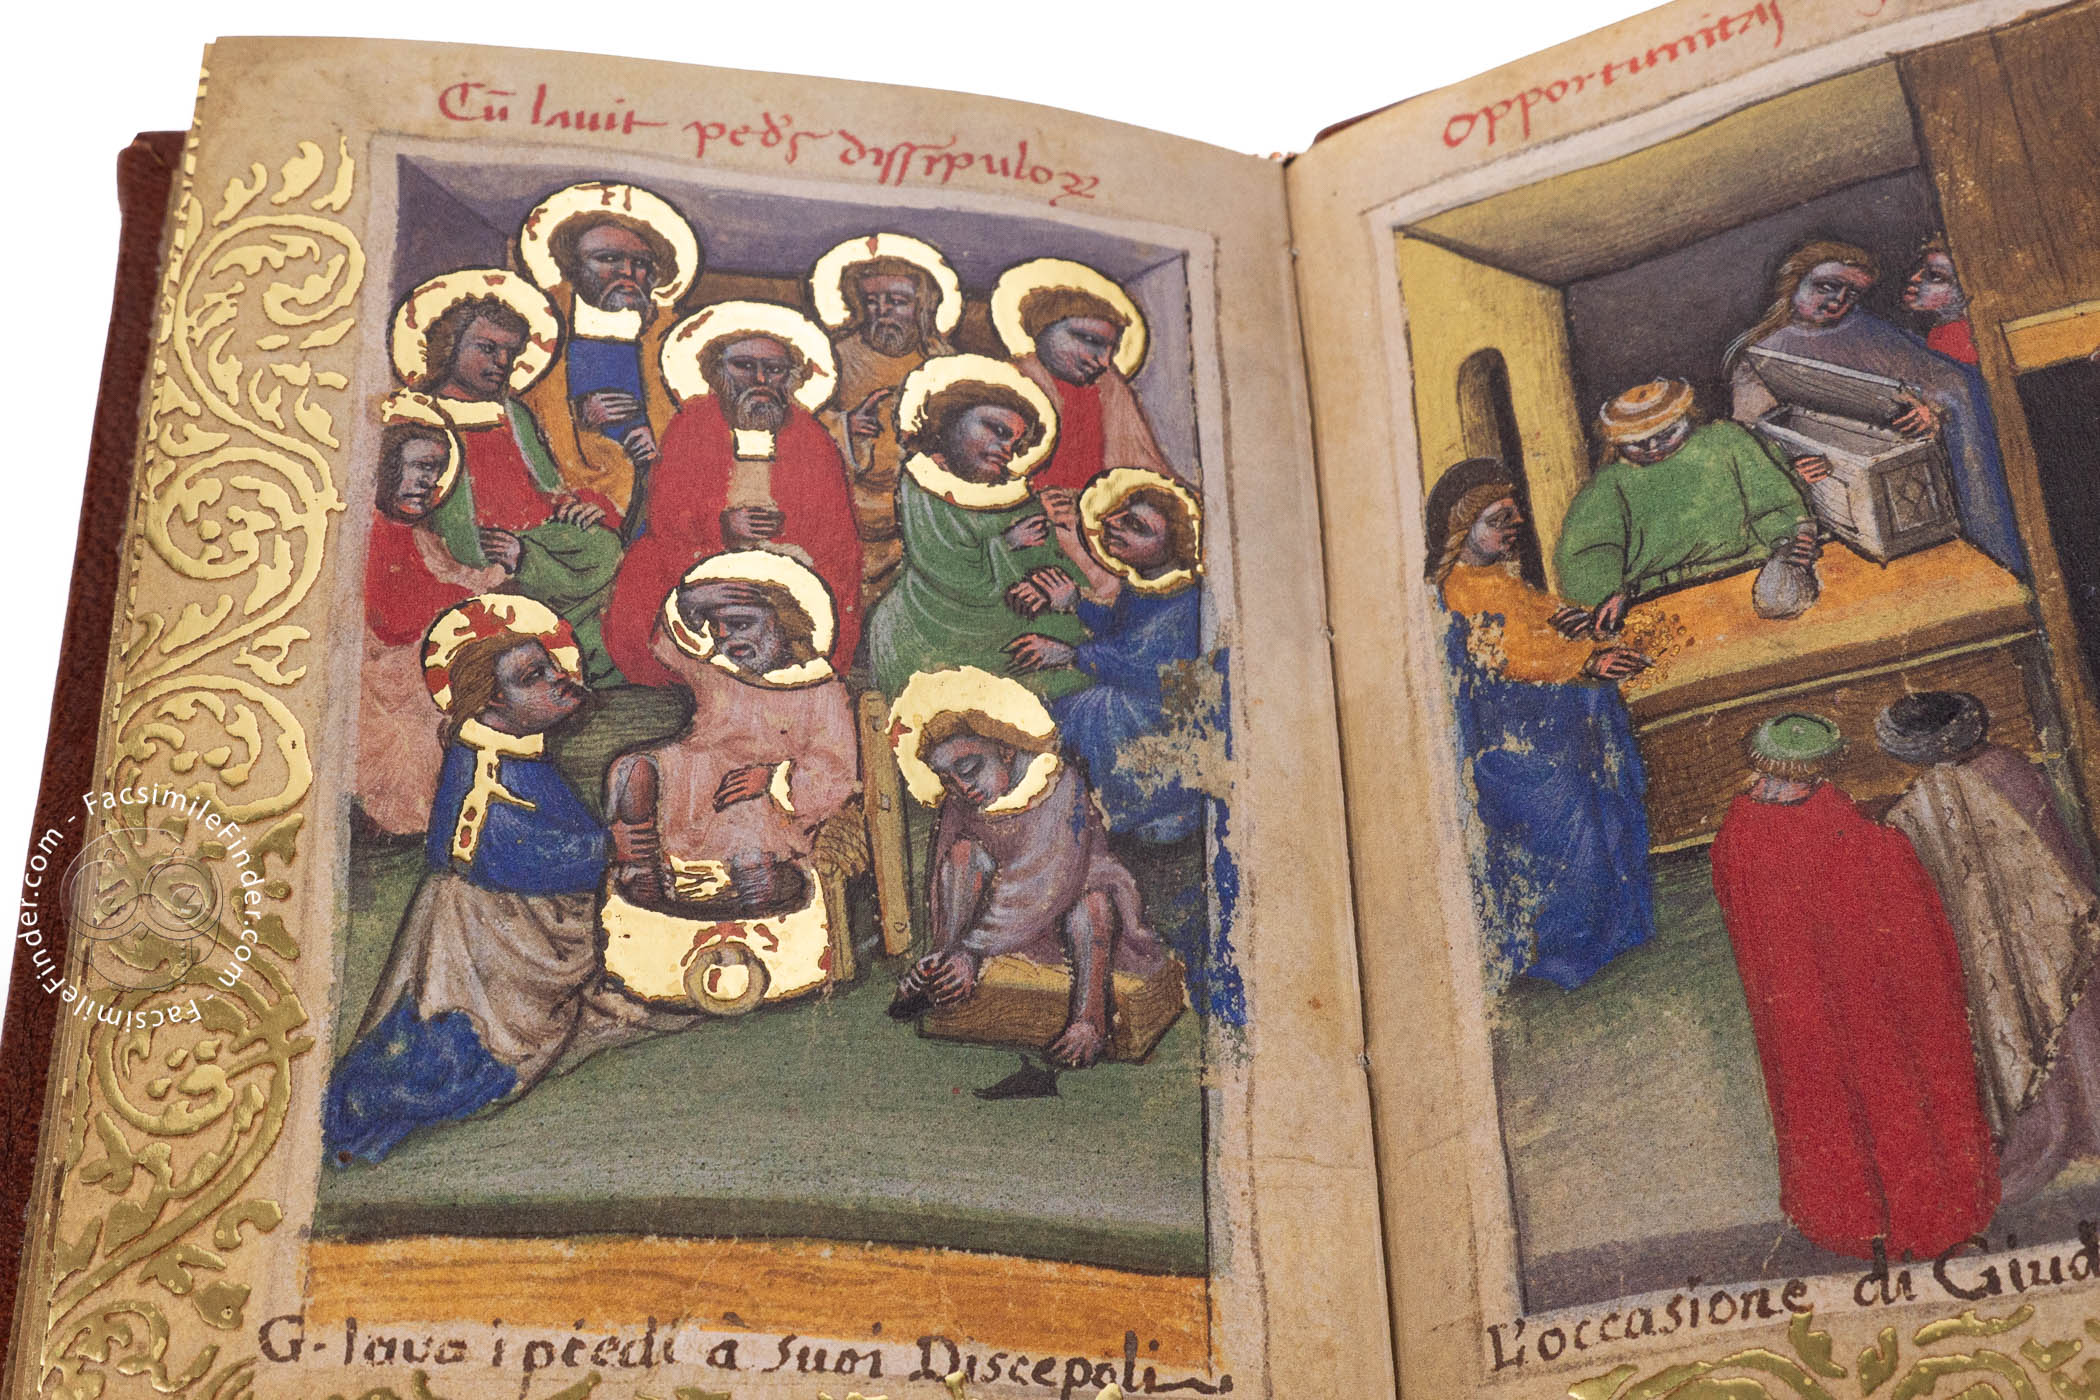 Cū lauit pedꝭ dissipuloꝝ
G. lava i piedi à suoi Discepoli
opportunitas
L'occasione di Giud
FacsimileFinder.com - FacsimileFinder.com - FacsimileFinder.com